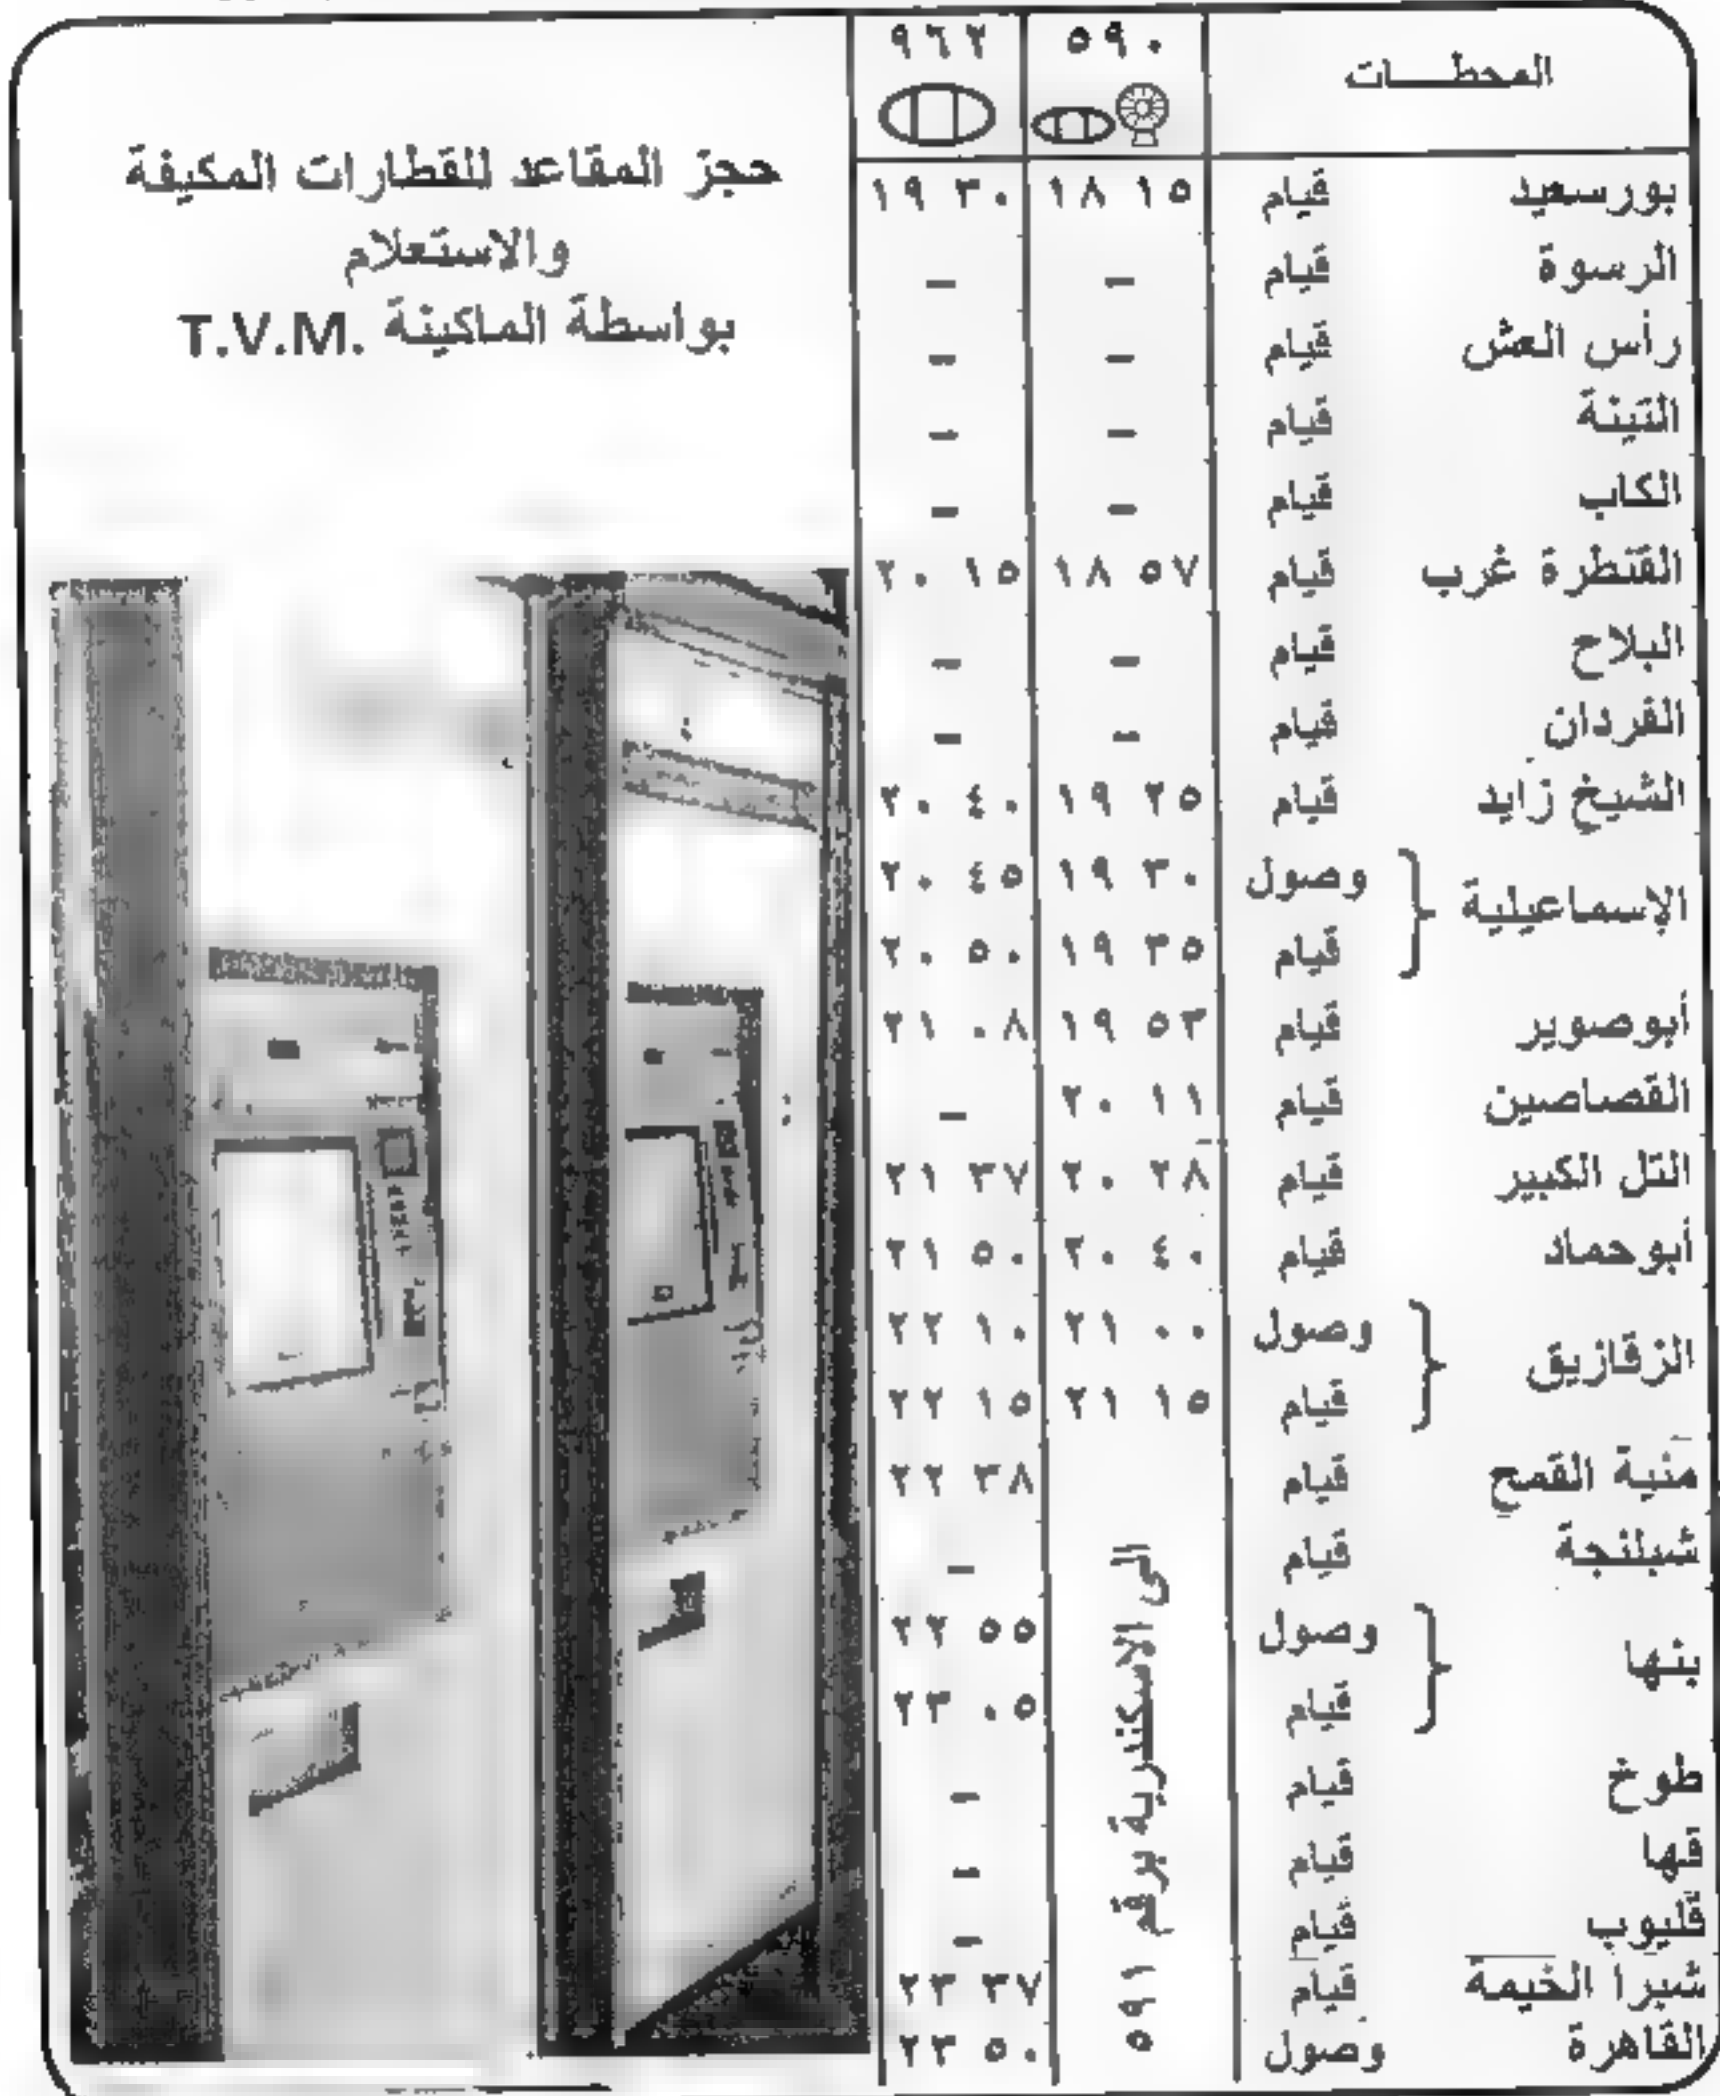 المحطــــات ٥٩٠ ٩٦٢
بورسعيد قيام ١٨ ١٥ ١٩ ٣٠
الرسوة قيام – –
رأس العش قيام – –
التينة قيام – –
الكاب قيام – –
القنطرة غرب قيام ١٨ ٥٧ ٢٠ ١٥
البلاح قيام – –
الفردان قيام – –
الشيخ زايد قيام ١٩ ٢٥ ٢٠ ٤٠
الإسماعيلية وصول ١٩ ٣٠ ٢٠ ٤٥
قيام ١٩ ٣٥ ٢٠ ٥٠
أبوصوير قيام ١٩ ٥٣ ٢١ ٠٨
القصاصين قيام ٢٠ ١١ –
التل الكبير قيام ٢٠ ٢٨ ٢١ ٣٧
أبوحماد قيام ٢٠ ٤٠ ٢١ ٥٠
الزقازيق وصول ٢١ ٠٠ ٢٢ ١٠
قيام ٢١ ١٥ ٢٢ ١٥
منية القمح قيام ٢٢ ٣٨
شبلنجة قيام –
بنها وصول ٢٢ ٥٥
قيام ٢٣ ٠٥
طوخ قيام –
قها قيام –
قليوب قيام –
شبرا الخيمة قيام ٢٣ ٣٧
القاهرة وصول ٢٣ ٥٠
الى الاسكندرية برقم ٥٩١
حجز المقاعد للقطارات المكيفة
والاستعلام
بواسطة الماكينة T.V.M.